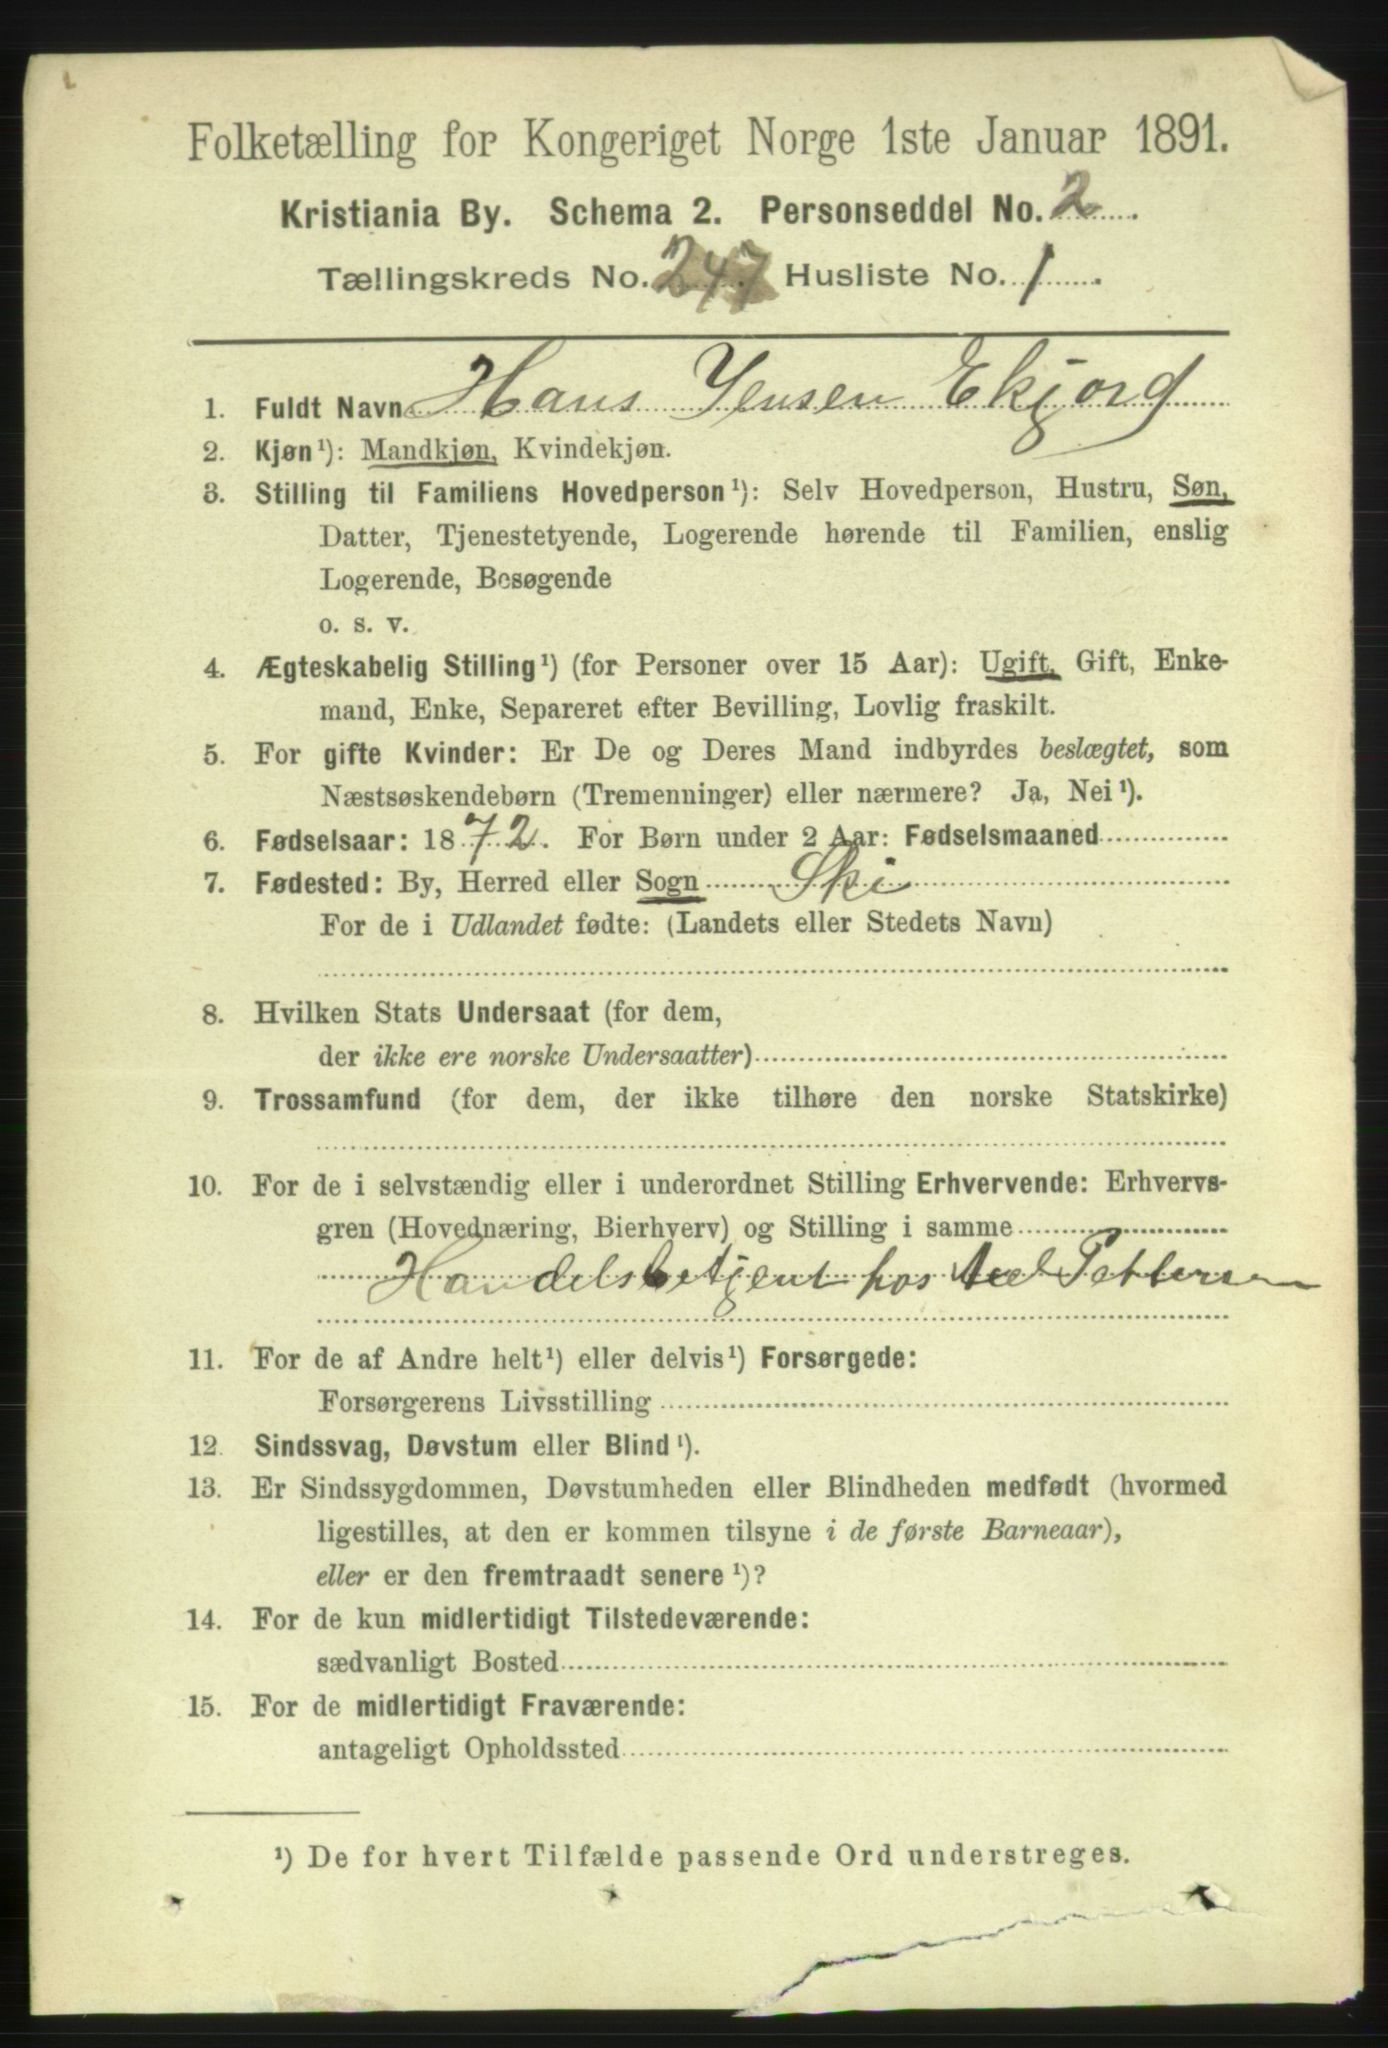 Folketælling for Kongeriget Norge 1ste Januar 1891.
Kristiania By. Schema 2. Personseddel No. 2.
Tællingskreds No. 247 Husliste No. 1.
1. Fuldt Navn Hans Jensen Ekjord
2. Kjøn¹): Mandkjøn, Kvindekjøn.
3. Stilling til Familiens Hovedperson¹): Selv Hovedperson, Hustru, Søn,
Datter, Tjenestetyende, Logerende hørende til Familien, enslig
Logerende, Besøgende
o. s. v.
4. Ægteskabelig Stilling¹) (for Personer over 15 Aar): Ugift, Gift, Enke-
mand, Enke, Separeret efter Bevilling, Lovlig fraskilt.
5. For gifte Kvinder: Er De og Deres Mand indbyrdes beslægtet, som
Næstsøskendebørn (Tremenninger) eller nærmere? Ja, Nei¹).
6. Fødselsaar: 1872. For Børn under 2 Aar: Fødselsmaaned
7. Fødested: By, Herred eller Sogn Ski
For de i Udlandet fødte: (Landets eller Stedets Navn)
8. Hvilken Stats Undersaat (for dem,
der ikke ere norske Undersaatter)
9. Trossamfund (for dem, der ikke tilhøre den norske Statskirke)
10. For de i selvstændig eller i underordnet Stilling Erhvervende: Erhvervs-
gren (Hovednæring, Bierhverv) og Stilling i samme
Handelsbetjent hos Axel Pettersen
11. For de af Andre helt¹) eller delvis¹) Forsørgede:
Forsørgerens Livsstilling
12. Sindssvag, Døvstum eller Blind¹).
13. Er Sindssygdommen, Døvstumheden eller Blindheden medfødt (hvormed
ligestilles, at den er kommen tilsyne i de første Barneaar),
eller er den fremtraadt senere¹)?
14. For de kun midlertidigt Tilstedeværende:
sædvanligt Bosted
15. For de midlertidigt Fraværende:
antageligt Opholdssted
¹) De for hvert Tilfælde passende Ord understreges.